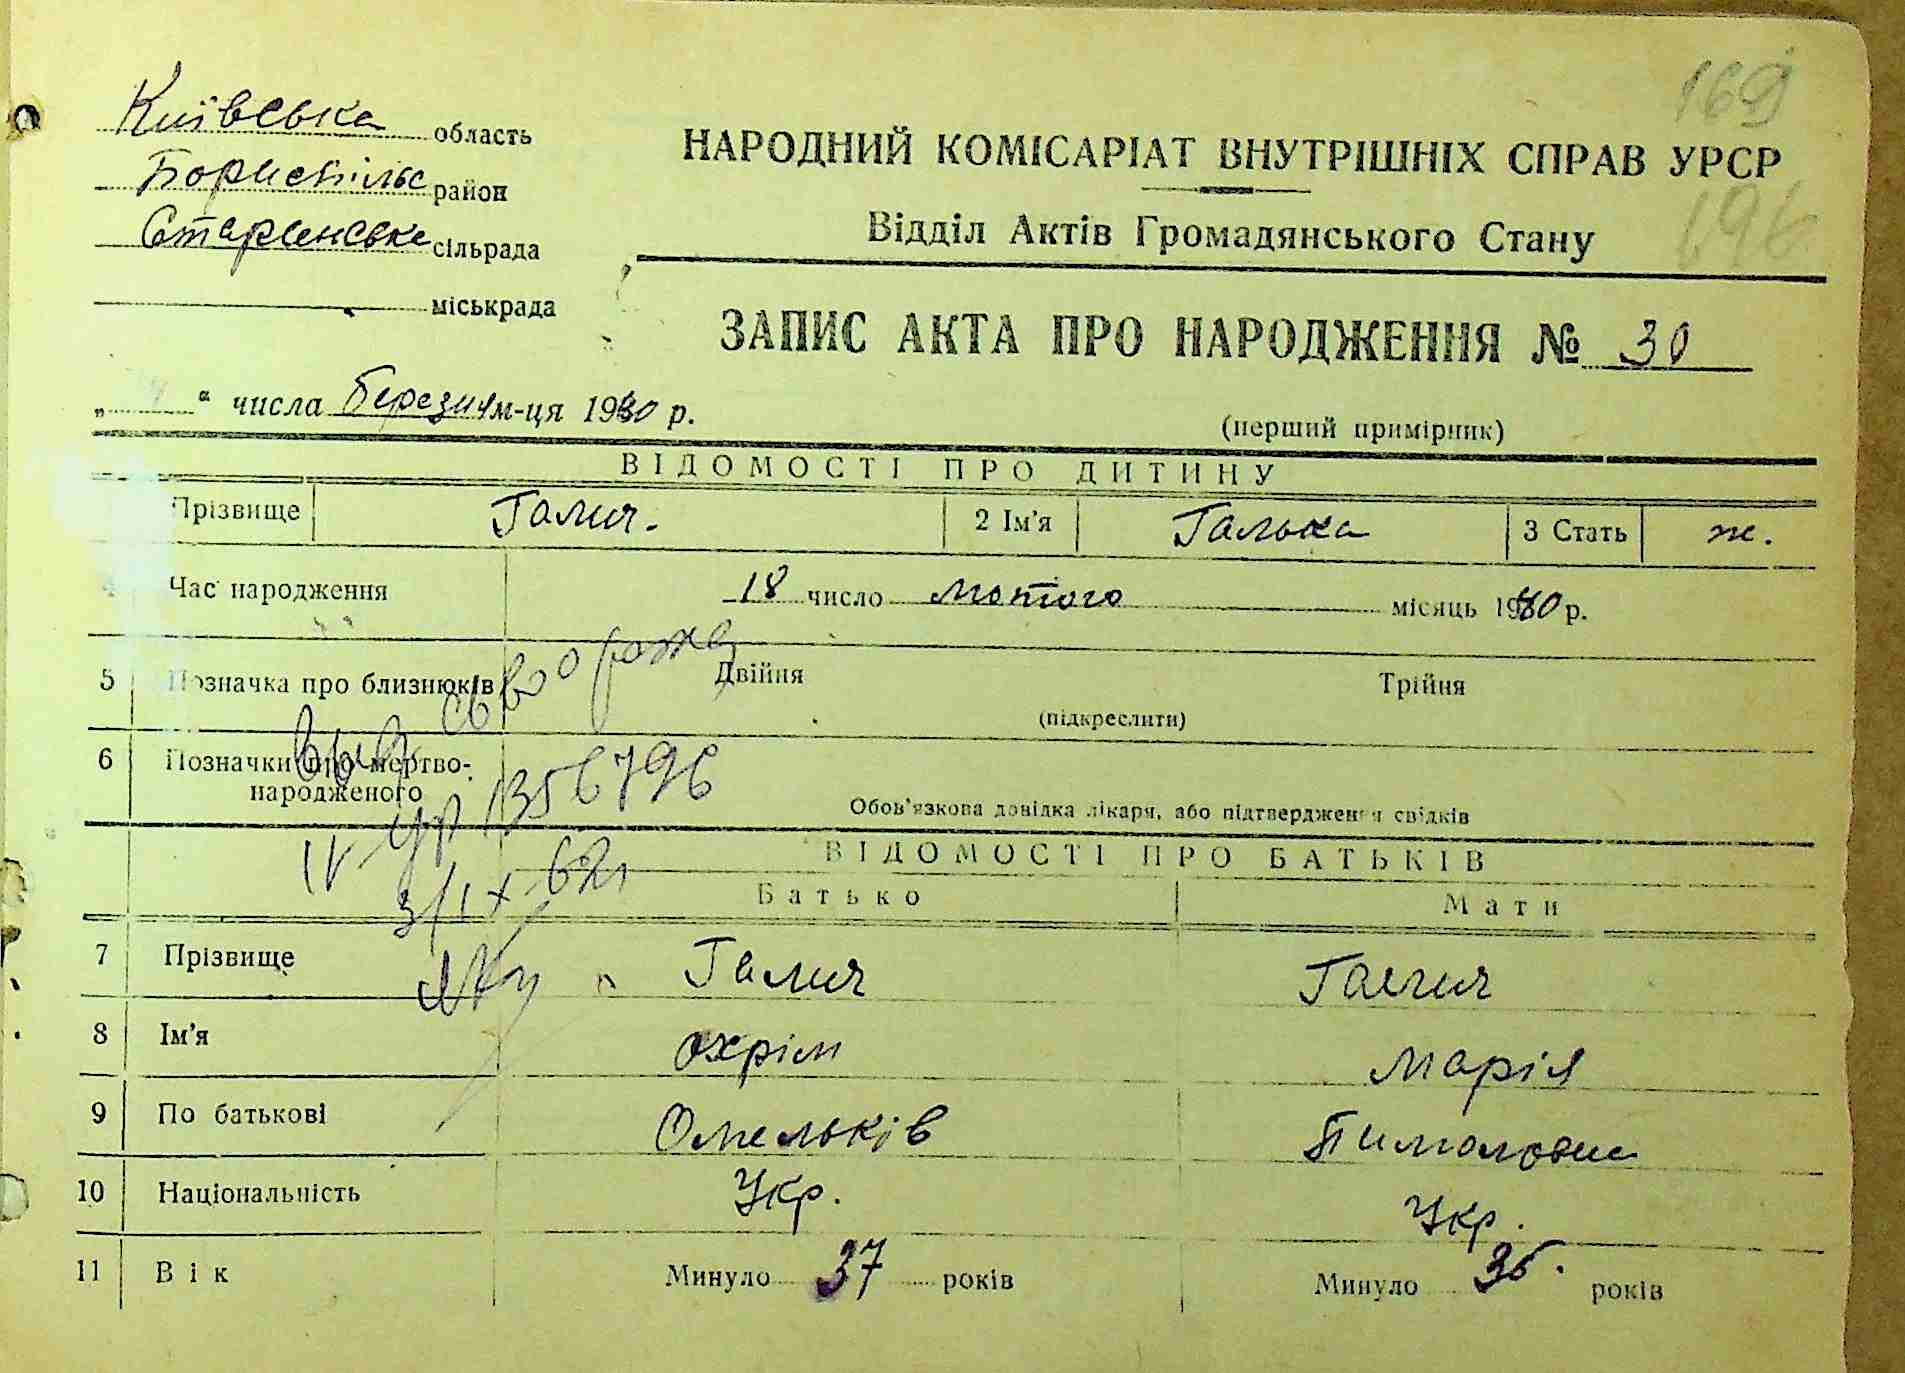 169
Київська область
НАРОДНИЙ КОМІСАРІАТ ВНУТРІШНІХ СПРАВ УРСР
Бориспільс район
196
Старинське сільрада
Відділ Актів Громадянського Стану
міськрада
ЗАПИС АКТА ПРО НАРОДЖЕННЯ № 30
„ “ числа м-ця 1940 р.
(перший примірник)
ВІДОМОСТІ ПРО ДИТИНУ
Прізвище Галич. 2 Ім'я Галька 3 Стать ж.
4 Час народження 18 число лютого місяць 1940 р.
5 Позначка про близнюків Двійня Трійня
(підкреслити)
6 Позначки про мертво-
народженого
Обов'язкова довідка лікаря, або підтвердження свідків
выд. св во о рожд
IV УР 1356796
3/IX 62г
ВІДОМОСТІ ПРО БАТЬКІВ
Батько Мати
7 Прізвище Галич Галич
8 Ім'я Охрім Марія
9 По батькові Омельків
10 Національність Укр. Укр.
11 Вік Минуло 37 років Минуло 36. років